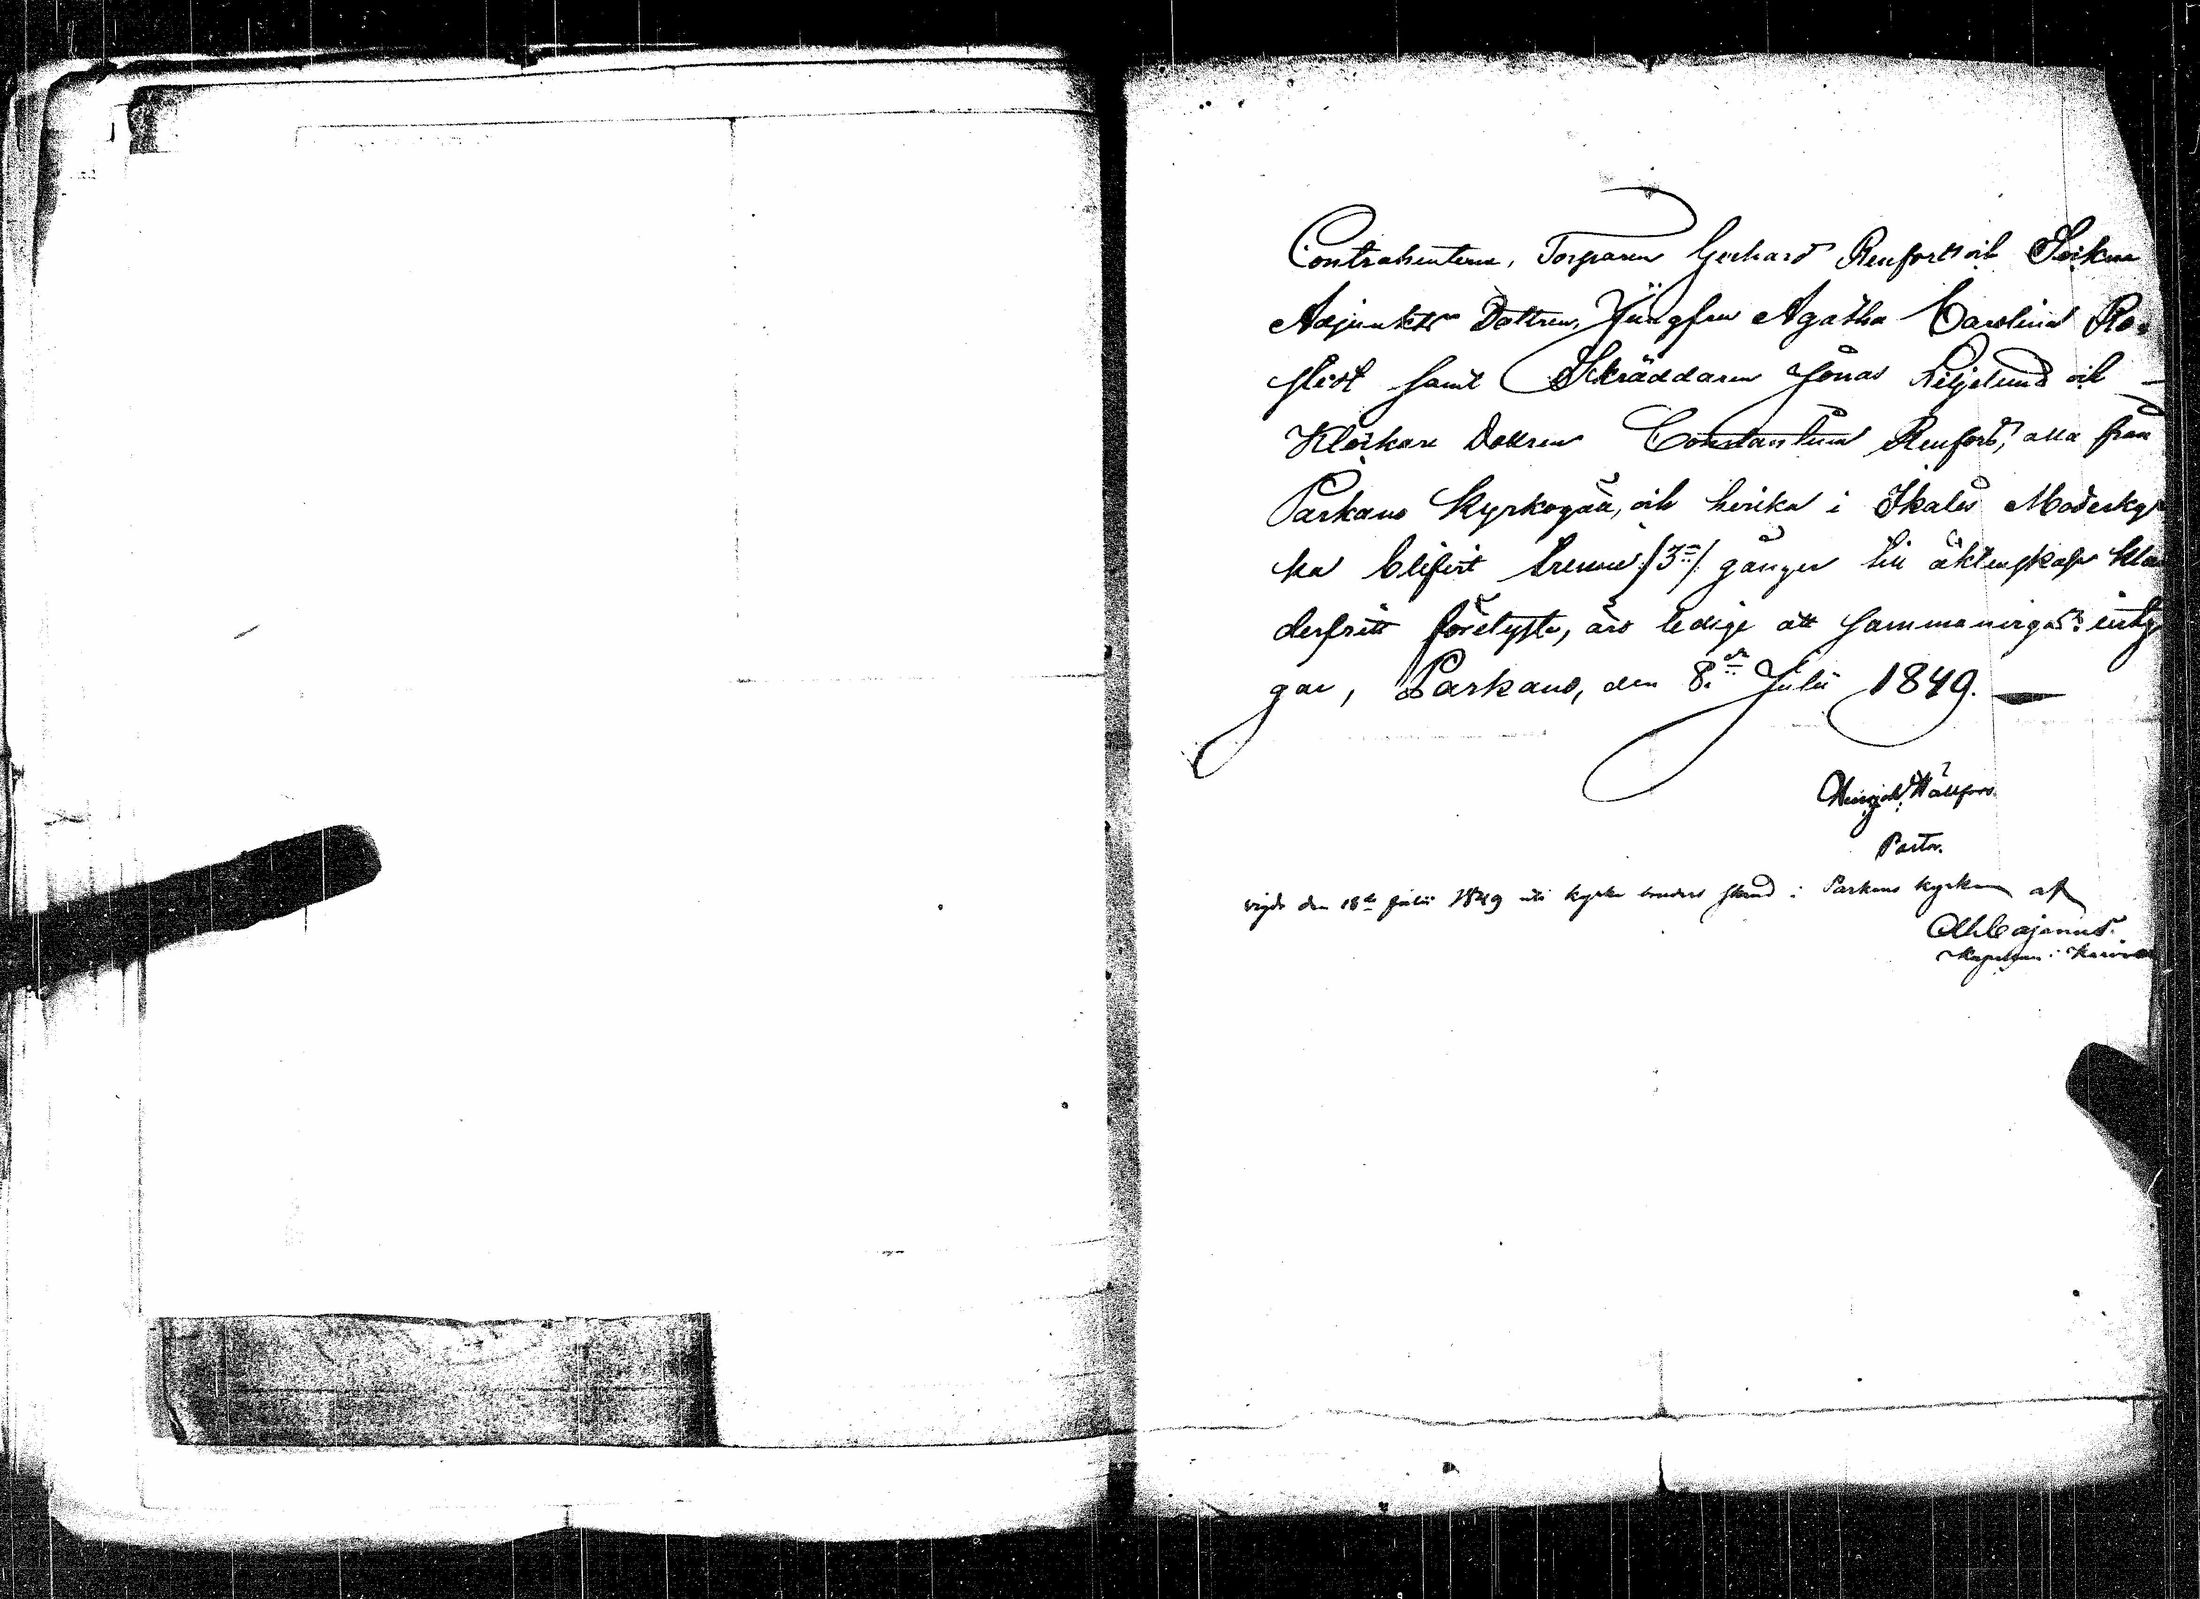 Contrahenterne, Torparen Gerhard Renfors och Sockne
Adjunkts Dottren, Jungfru Agatha Carolina Ro-
stedt samt Skräddaren Jonas Liljelund och
Klockare Dottren Constantina Renfors, alla från
Parkano Kyrkogäll, och hvilka i Ikalis Moderkyr
ka blifvit trenne /3ne/ gånger till äktenskap klan
derfritt förelyste, äro ledige att sammanvigas: inty
gar, Parkano, den 8.de Julii 1849.
Hällfors.
Pastor.
vigde den 18de Julii 1849 uti kyrko stånd i Parkano kyrka af
Cajanus.
Kapellan i